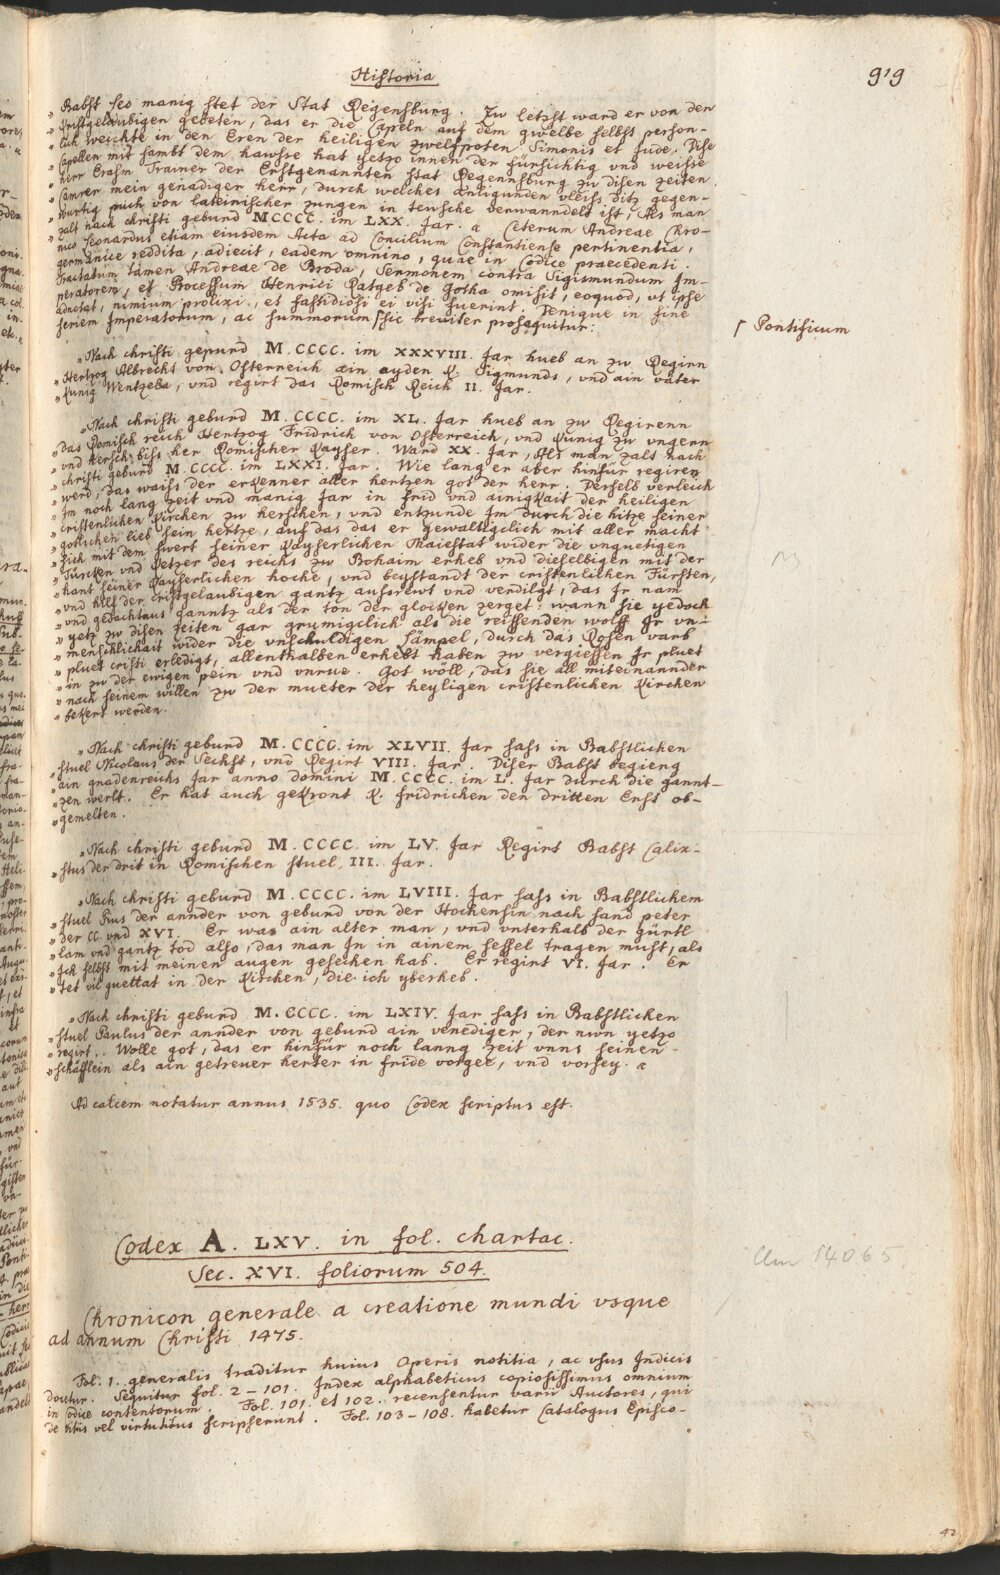 Historia
919
„ Babst Leo manig stet der Stat Regensburg. Zu letzst ward er von den
„ kristgelaubigen gebeten, das er die Capeln auf dem gwelbe selbs person-
„ lich weichte in den Eren der heiligen zwelfpoten Simonis et Jude. Dise
„ Capellen mit sambt dem hawsse hat yetzo innen der fürsichtig vnd weisse
„ herr Erasm Trainer der Erstgenannten stat Regennsburg zu disen zeiten
„ Camrer mein genadiger herr, durch welches anligunden vleiss ditz gegen-
„ wurtig puch von lateinischer zungen in teutsche verwanndelt ist, Als man
„ zalt nach christi geburd MCCCC. im LXX. Jar. a Ceterum Andreae Chro-
nico Leonardus etiam eiusdem Acta ad Concilium Constantiense pertinentia,
germanice reddita, adiecit, eadem omnino, quae in Codice praecedenti.
Tractatum tamen Andreae de Broda, Sermonem contra Sigismundum Im-
peratorem, et Processum Henrici Ratgeb de Gotha omisit, eoquod, vt ipse
adnotat, nimium prolixi, et fastidiosi ei visi fuerint. Denique in fine
seriem Imperatorum, ac summorum ſ sic breviter prosequitur:
ſ Pontificum
„ Nach christi gepurd M.CCCC. im XXXVIII. Jar hueb an zu Regirn
„ Hertzog Albrecht von Osterreich ain ayden K. Sigmunds, vnd ain vater
„ Kunig Wentzeba, vnd regirt das Romisch Reich II. Jar.
„ Nach christi geburd M.CCCC. im XL. Jar hueb an zu Regirenn
„ das Romisch reich Hertzog Fridrich von Osterreich, vnd Kunig zu vngern
„ vnd hersch biss her Romischer Kayser. Ward XX. Jar, Als man zalt nach
„ christi geburd M.CCCC. im LXXI. Jar. Wie lang er aber hinfür regiren
„ werd, das waiss der erkenner aller hertzen got der herr. Derselb verleich
„ Im noch lang zeit vnd manig Jar in frid vnd ainigkait der heiligen
„ cristenlichen kirchen zu herschen, vnd entzunde Im durch die hitze seiner
„ gotlichen lieb sein hertze, auf das das er gewaltigclich mit aller macht
„ sich mit dem swert seiner Kayserlichen Maiestat wider die vnguetigen
„ Türcken vnd Ketzer des reichs zu Bohaim erheb vnd dieselbigen mit der
„ hant seiner Kayserlichen hoche, vnd beystandt der cristenlichen Fürsten,
„ vnd hilf der cristgelaubigen gantz aussrewt vnd verdilgt, das Ir nam
„ vnd gedachtnus ganntz als der ton der glocken zerget: wann sie yedoch
„ yetz zu disen Zeiten gar grumigclich als die reissenden wolff Ir vn-
„ menschlichait wider die vnschuldigen Lämpel, durch das Rosen varb
„ pluet cristi erledigt, allenthalben erhebt haben zu vergiessen Ir pluet
„ in zu der ewigen pein vnd vnrue. Got wöll, das sie all miteinannder
„ nach seinem willen zu der mueter der heyligen cristenlichen kirchen
„ bekert werden.
„ Nach christi geburd M.CCCC. im XLVII. Jar sass in Babstlichen
„ stuel Nicolaus der Sechst, vnd Regirt VIII. Jar. Diser Babst begieng
„ ain gnadenreichs Jar anno domini M.CCCC. im L. Jar durch die gannt-
„ zen werlt. Er hat auch gekront K. fridrichen den dritten Erst ob-
„ gemelten.
„ Nach christi geburd M.CCCC. im LV. Jar Regirt Babst Calix-
„ stus der drit in Romischen stuel III. Jar.
„ Nach christi geburd M.CCCC. im LVIII. Jar sass in Babstlichem
„ stuel Pius der annder von geburd von der Hochensin nach sand peter
„ der CC vnd XVI. Er was ain alter man, vnd vnterhalb der gürtl
„ lam vnd gantz tod also, das man In in ainem sessel tragen must, als
„ Ich selbst mit meinen augen gesechen hab. Er regirt VI. Jar. Er
„ tet vil guettat in der Kirchen, die ich yberheb.
„ Nach christi geburd M.CCCC. im LXIV. Jar sass in Babstlichen
„ stuel Paulus der annder von geburd ain venediger, der nun yetzo
„ regirt. Wolle got, das er hinfür noch lanng zeit vnns seinen
„ schäfflein als ain getreuer herter in fride vorgee, vnd vorsey. a
Ad calcem notatur annus 1535. quo Codex scriptus est.
Codex A. LXV. in fol. chartac.
Sec. XVI. foliorum 504.
Clm 14065
Chronicon generale a creatione mundi vsque
ad annum Christi 1475.
Fol. 1. generalis traditur huius Operis notitia, ac vsus Indicis
docetur. Sequitur fol. 2 – 101. Index alphabeticus copiosissimus omnium
in Codice contentorum. Fol. 101. et 102. recensentur varii Auctores, qui
de vitiis vel virtutibus scripserunt. Fol. 103 – 108. habetur Catalogus Episco-
42